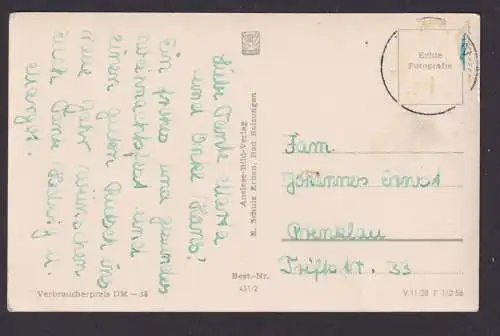 Liebe Tante Marta
und Onkel Hans!
Ein frohes und gesundes
Weihnachtsfest und
einen guten Rutsch ins
neue Jahr wünschen
euch Fam.
Auslese-Bild-Verlag
K. Schulz Erben, Bad Salzungen
Best.-Nr.
451/2
Verbraucherpreis DM —.18
Echte
Fotografie
Fam.
Johannes Ernst
Prenzlau
Triftstr. 33
V 11/28